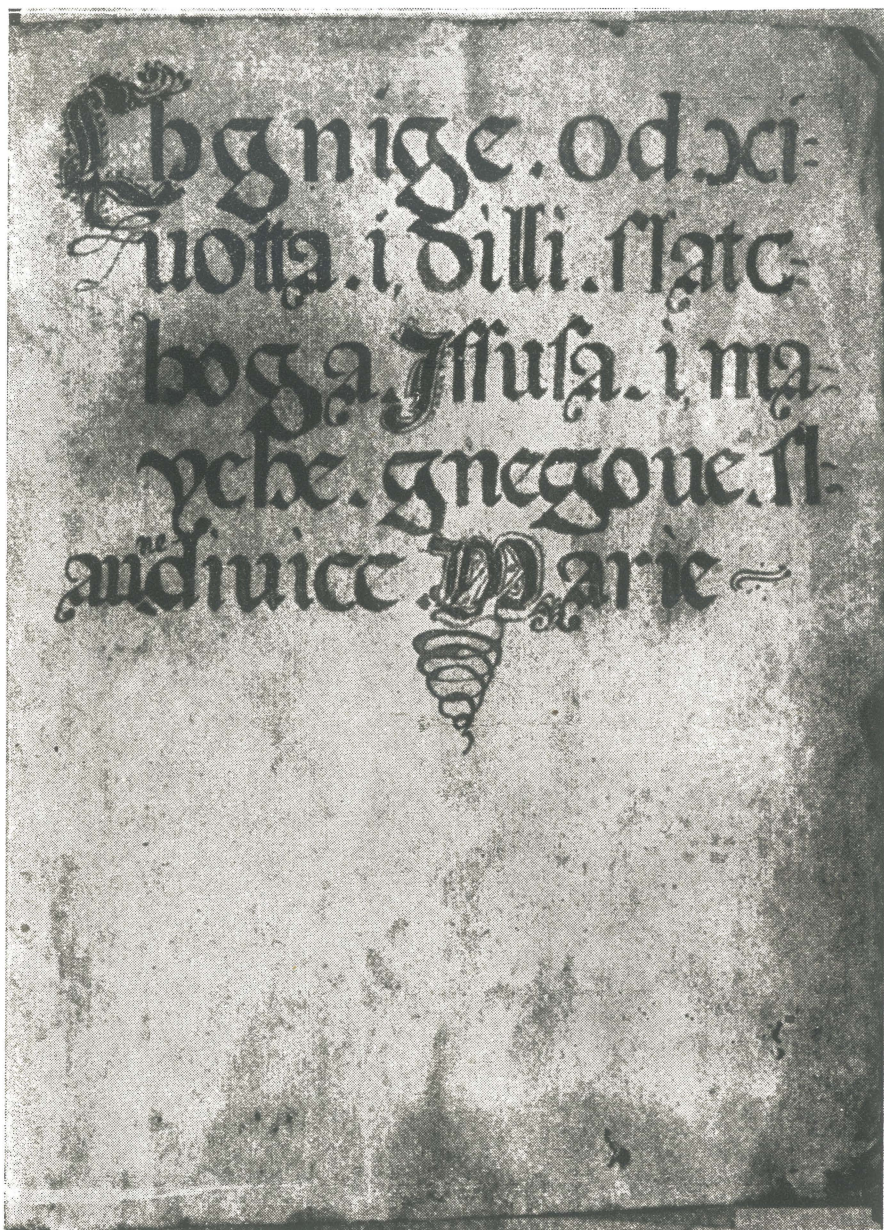 Chgnige . od . xi=
uotta . i, dilli . ſlatc=
hoga . Iſſuſa . i, ma=
yche . gnegoue . ſl=
aune diuice . Marie ~